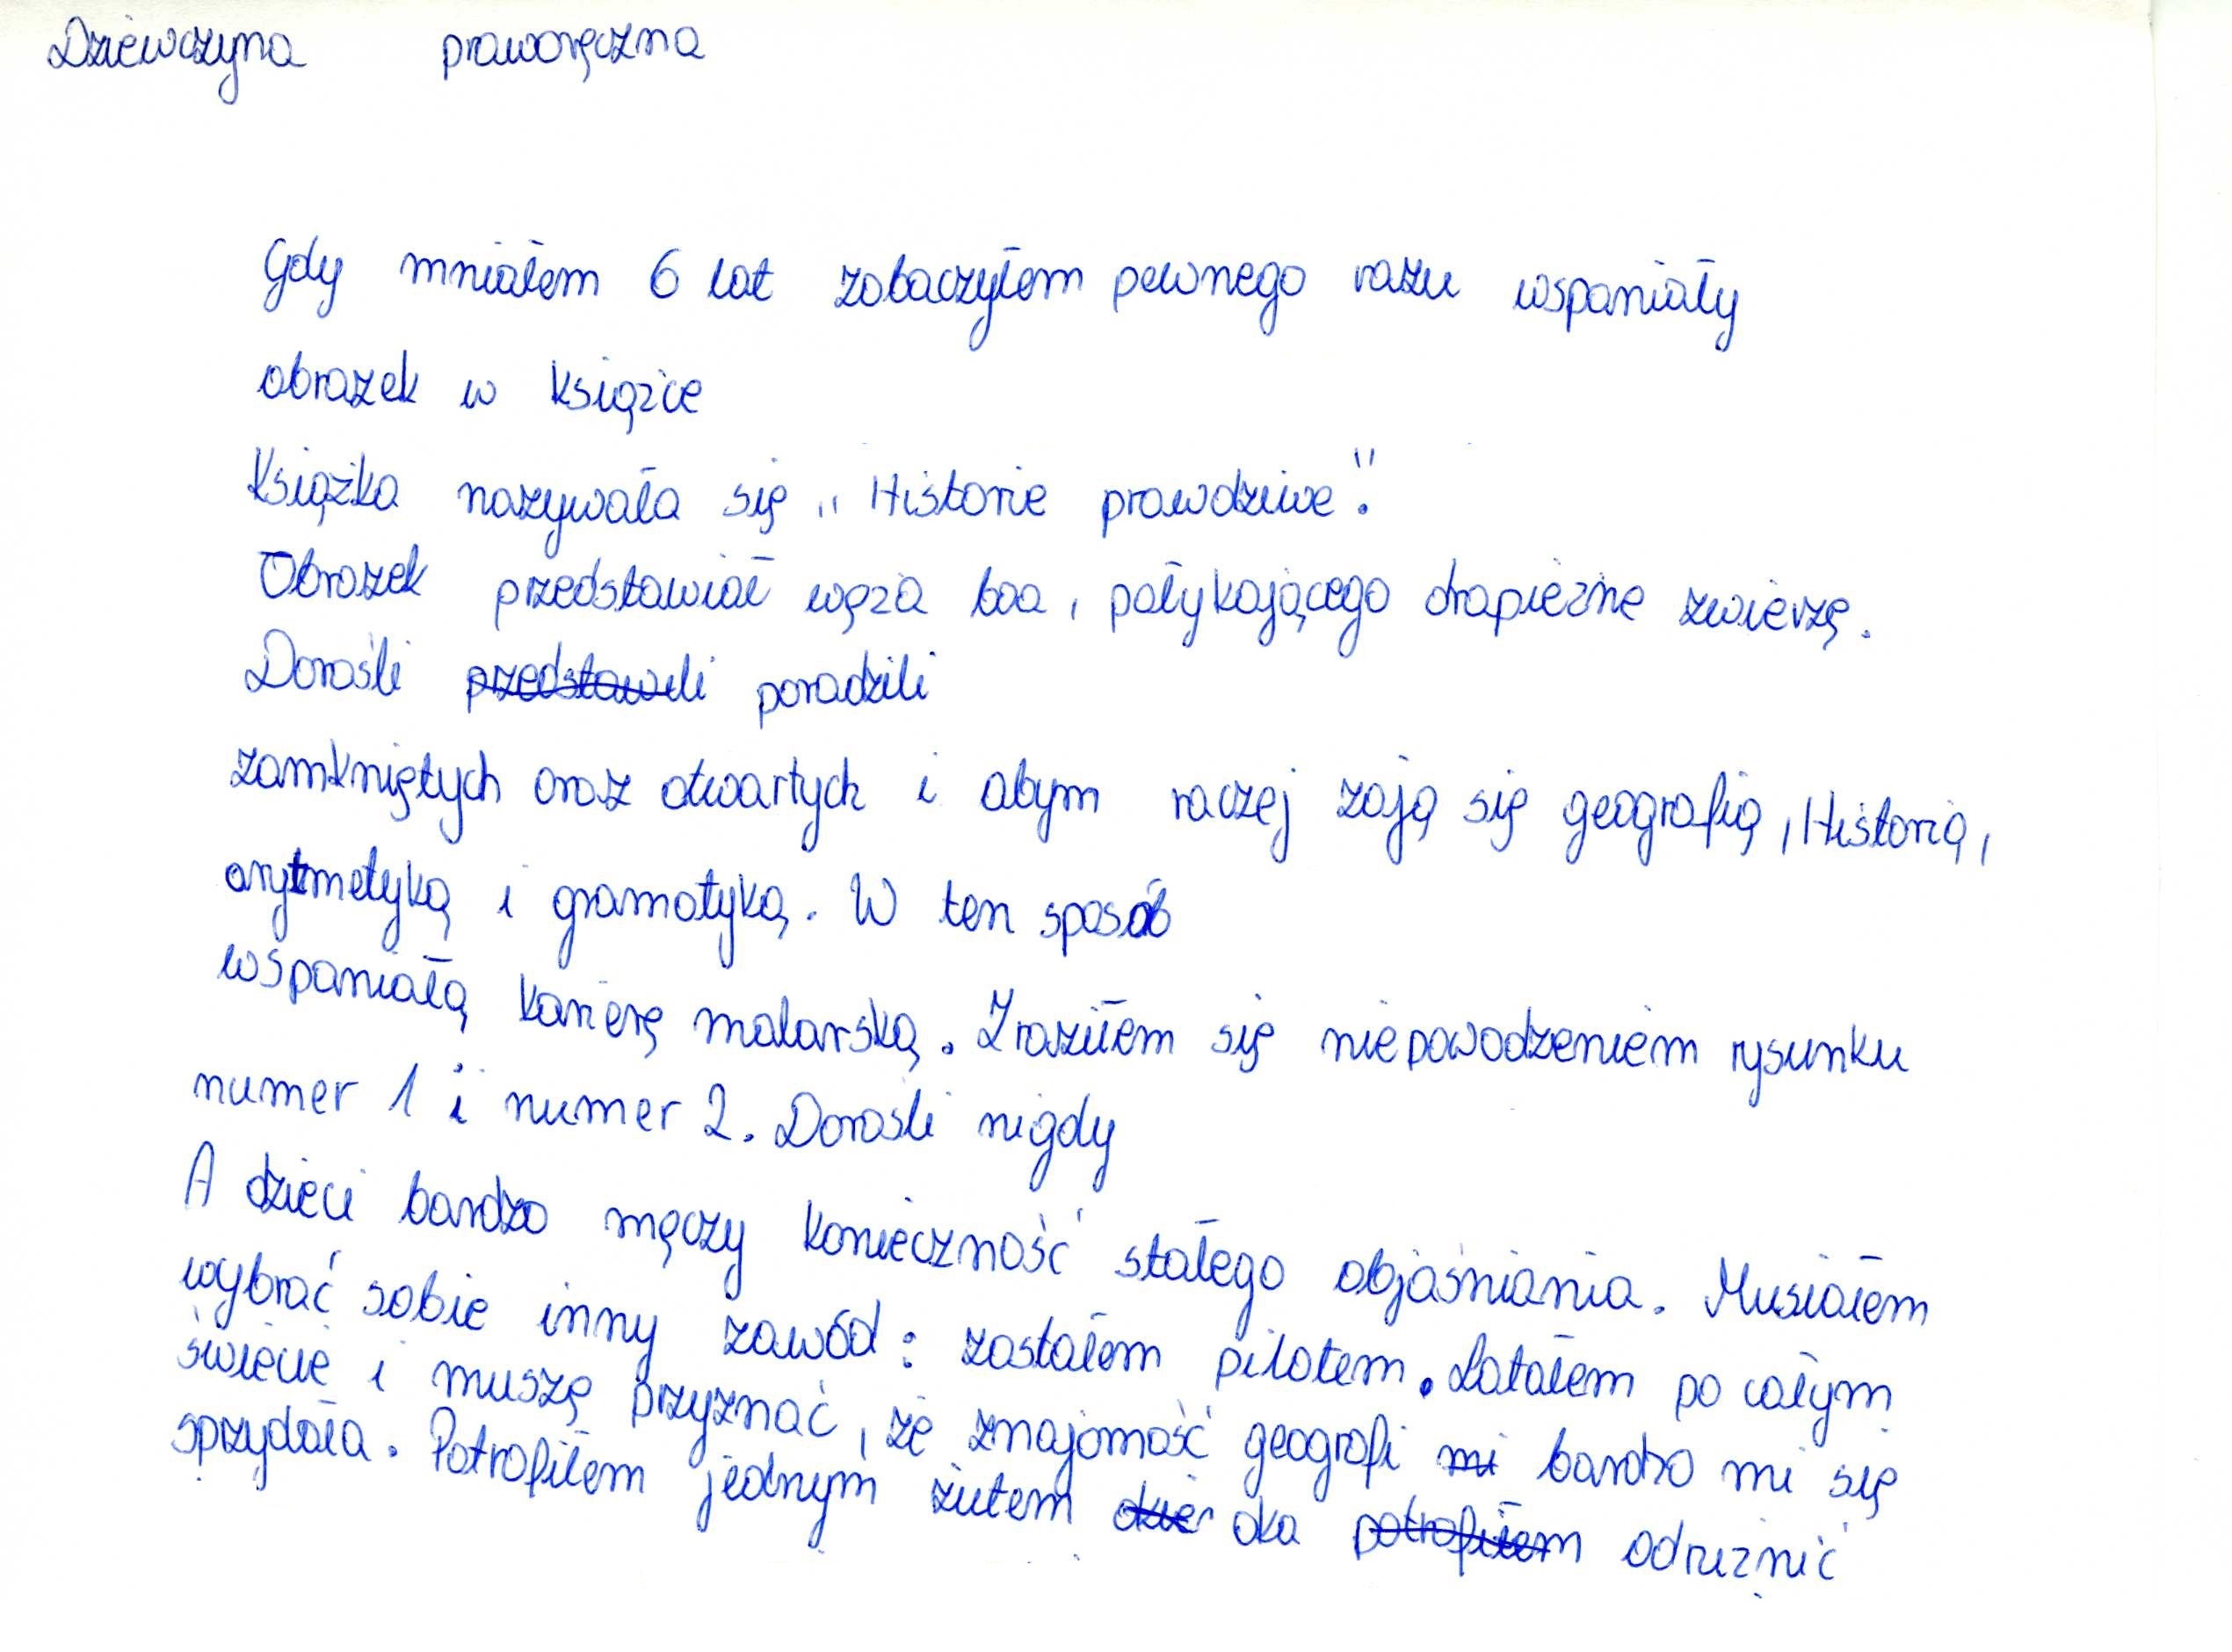 Dziewczyna praworęczna
Gdy mniałem 6 lat zobaczyłem pewnego razu wspaniały
obrazek w książce
Książka nazywała się „Historie prawdziwe".
Obrazek przedstawiał węża boa, połykającego drapieżne zwierzę.
Dorośli ~~przedstawili~~ poradzili
zamkniętych oraz otwartych i abym raczej zają się geografią, Historią,
arytmetyką i gramatyką. W ten sposób
wspaniałą karierę malarską. Zraziłem się niepowodzeniem rysunku
numer 1 i numer 2. Dorośli nigdy
A dzieci bardzo męczy konieczność stałego objaśniania. Musiałem
wybrać sobie inny zawód: zostałem pilotem. Latałem po całym
świecie i muszę przyznać, że znajomość geografi ~~mi~~ bardzo mi się
sprzydała. Potrafiłem jednym żutem ~~dzie~~ oka ~~potrafiłem~~ odrużnić